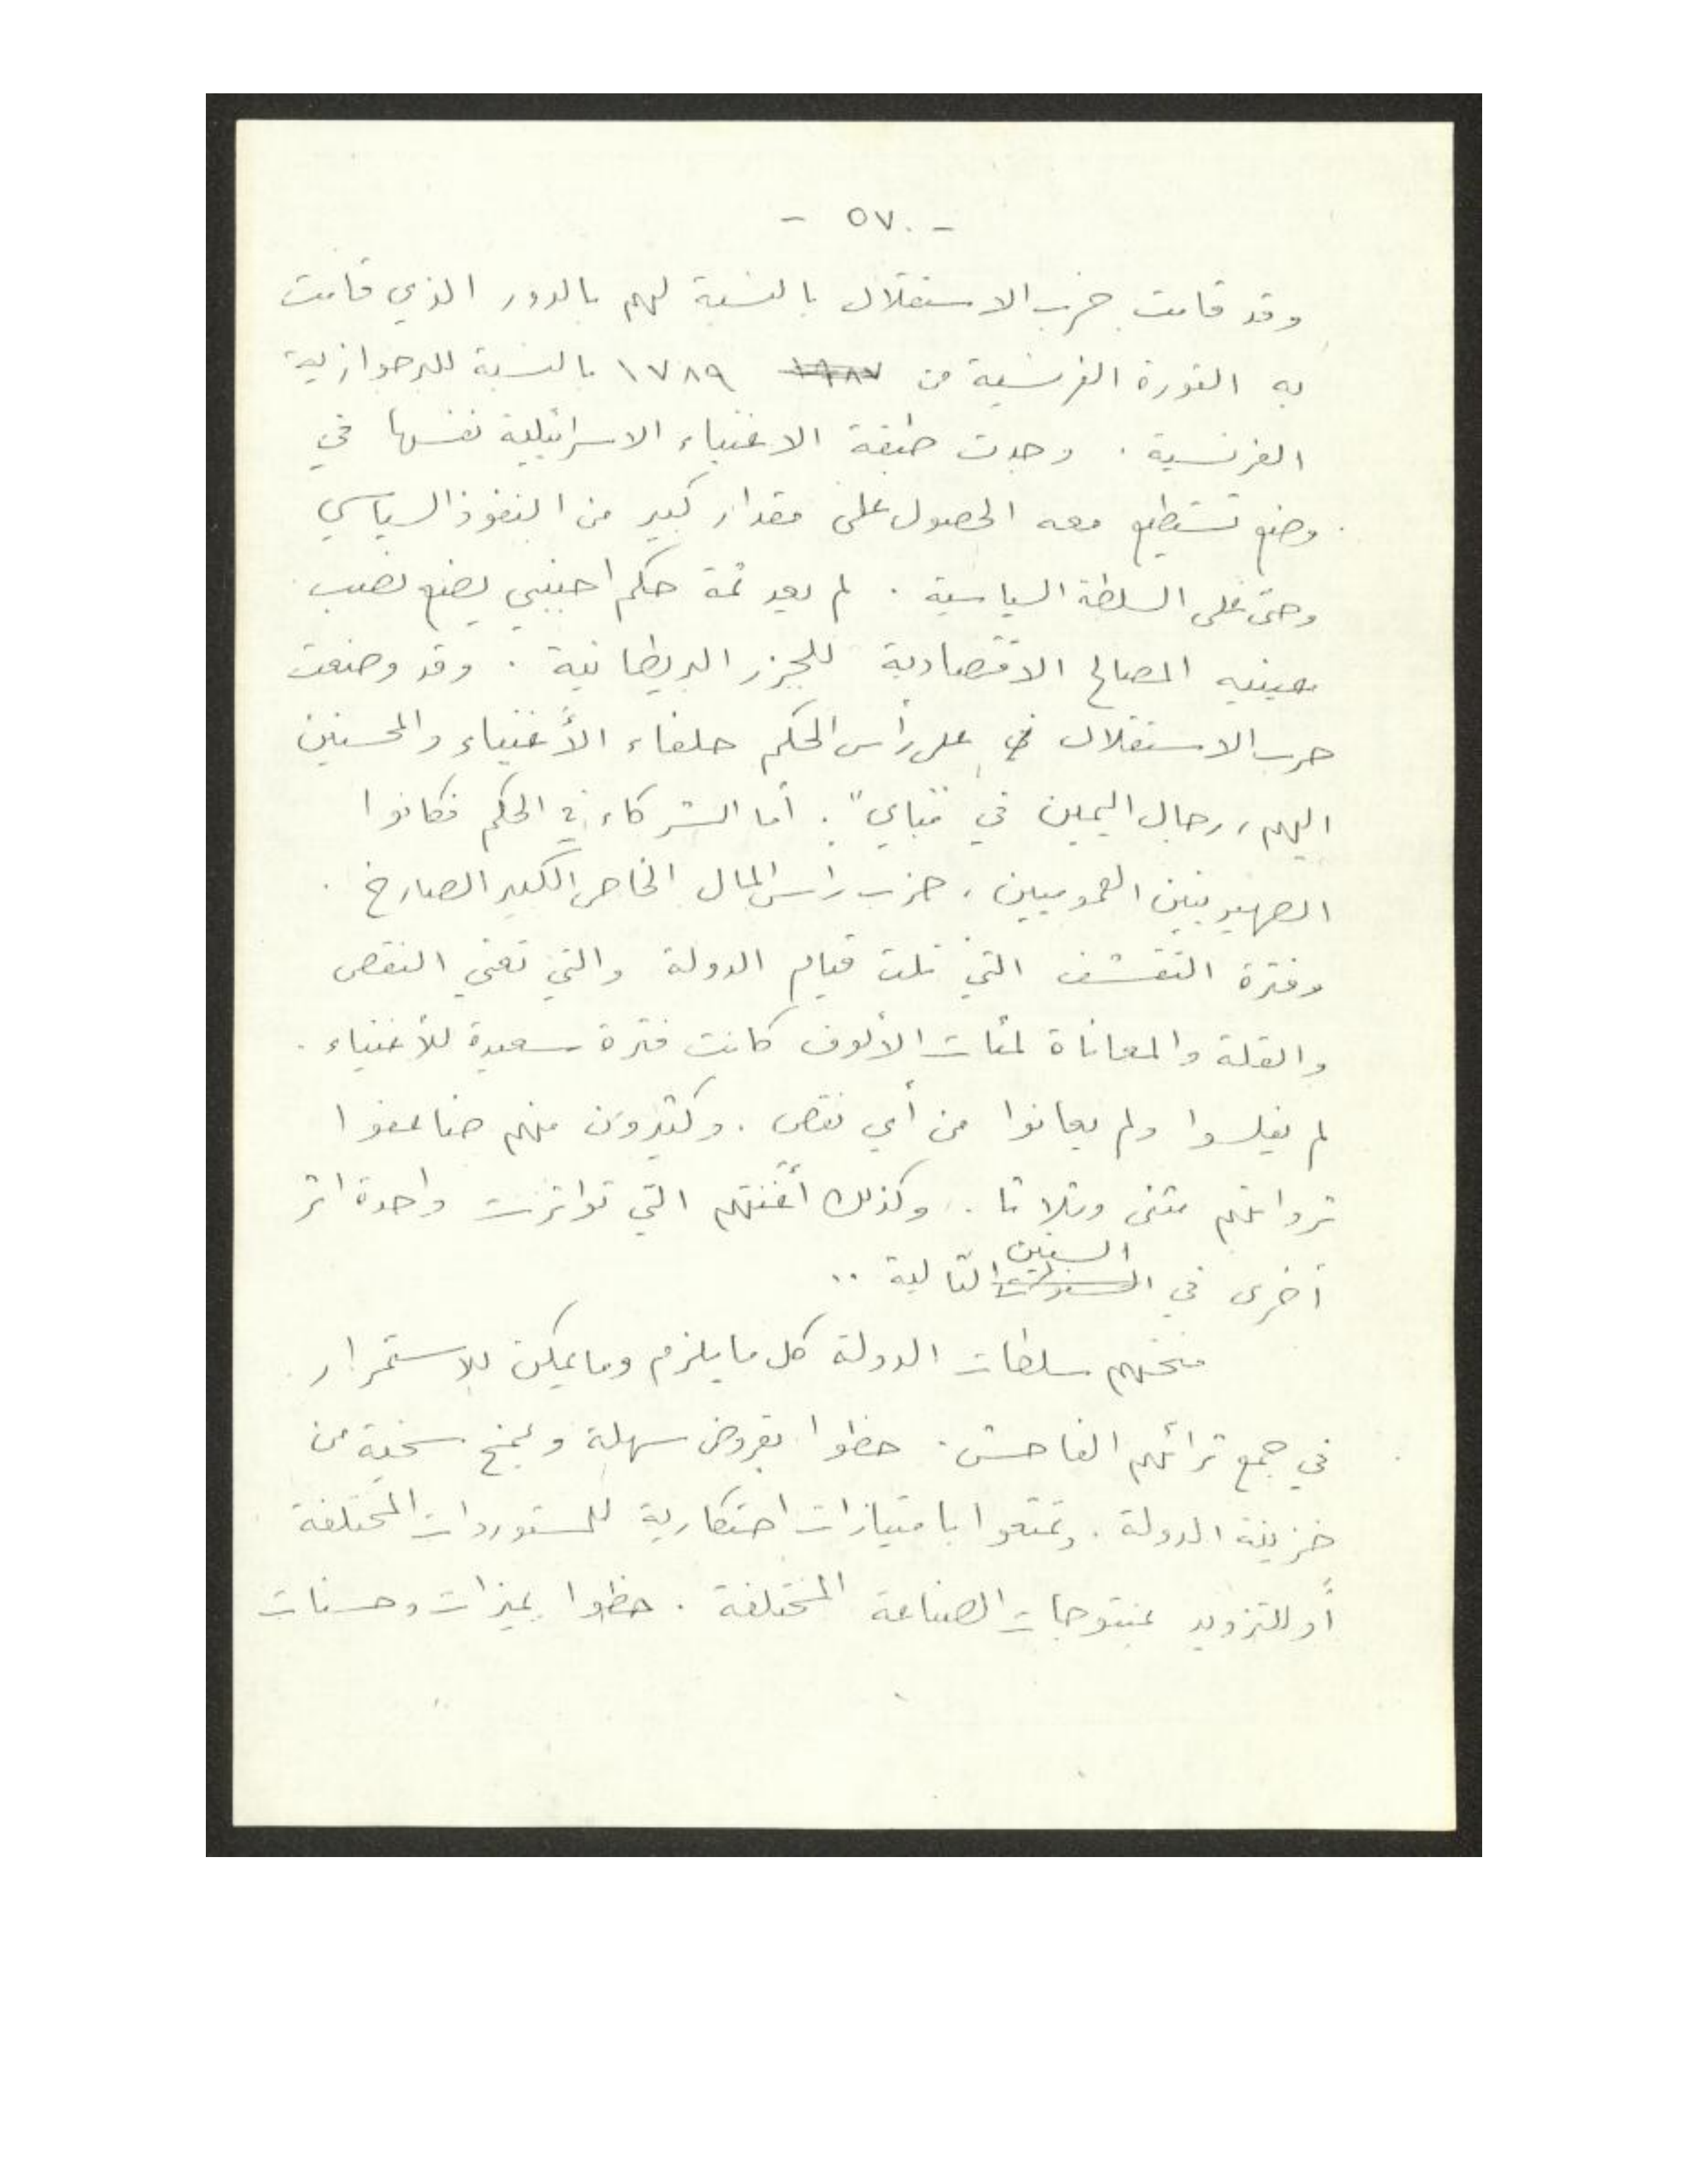 - ٥٧٠ -
وقد قامت حرب الاستقلال بالنسبة لهم بالدور الذي قامت
به الثورة الفرنسية من ١٧٨٩ بالنسبة للبرجوازية
الفرنسية . وجدت طبقة الاغنياء الاسرائيلية نفسها في
وضع تستطيع معه الحصول على مقدار كبير من النفوذ السياسي
وحتى على السلطة السياسية . لم يعد ثمة حكم اجنبي يضع نصب
عينيه المصالح الاقتصادية للجزر البريطانية . وقد وضعت
حرب الاستقلال على رأس الحكم حلفاء الأغنياء والمحسنين
اليهم، رجال اليمين في "مباي" . أما الشركاء في الحكم فكانوا
الصهيونيين العموميين ، حزب راس المال الخاص الكبير الصارخ .
وفترة التقشف التي تلت قيام الدولة والتي تعني النقص
والقلة والمعاناة لمئات الألوف كانت فترة سعيدة للأغنياء .
لم يفلسوا ولم يعانوا من أي نقص . وكثيرون منهم ضاعفوا
ثرواتهم مثنى وثلاثا . وكذلك التي تواترت واحدة اثر
أخرى في السنين التالية ..
منحتهم سلطات الدولة كل ما يلزم وما يمكن للاستمرار
في جمع ثرائهم الفاحش . حظوا بقروض سهلة وبمنح سخية من
خزينة الدولة . وتمتعوا بامتيازات احتكارية للمستوردات المختلفة
أو للتزويد بمنتوجات الصناعة المختلفة . حظوا بميزات وحسنات